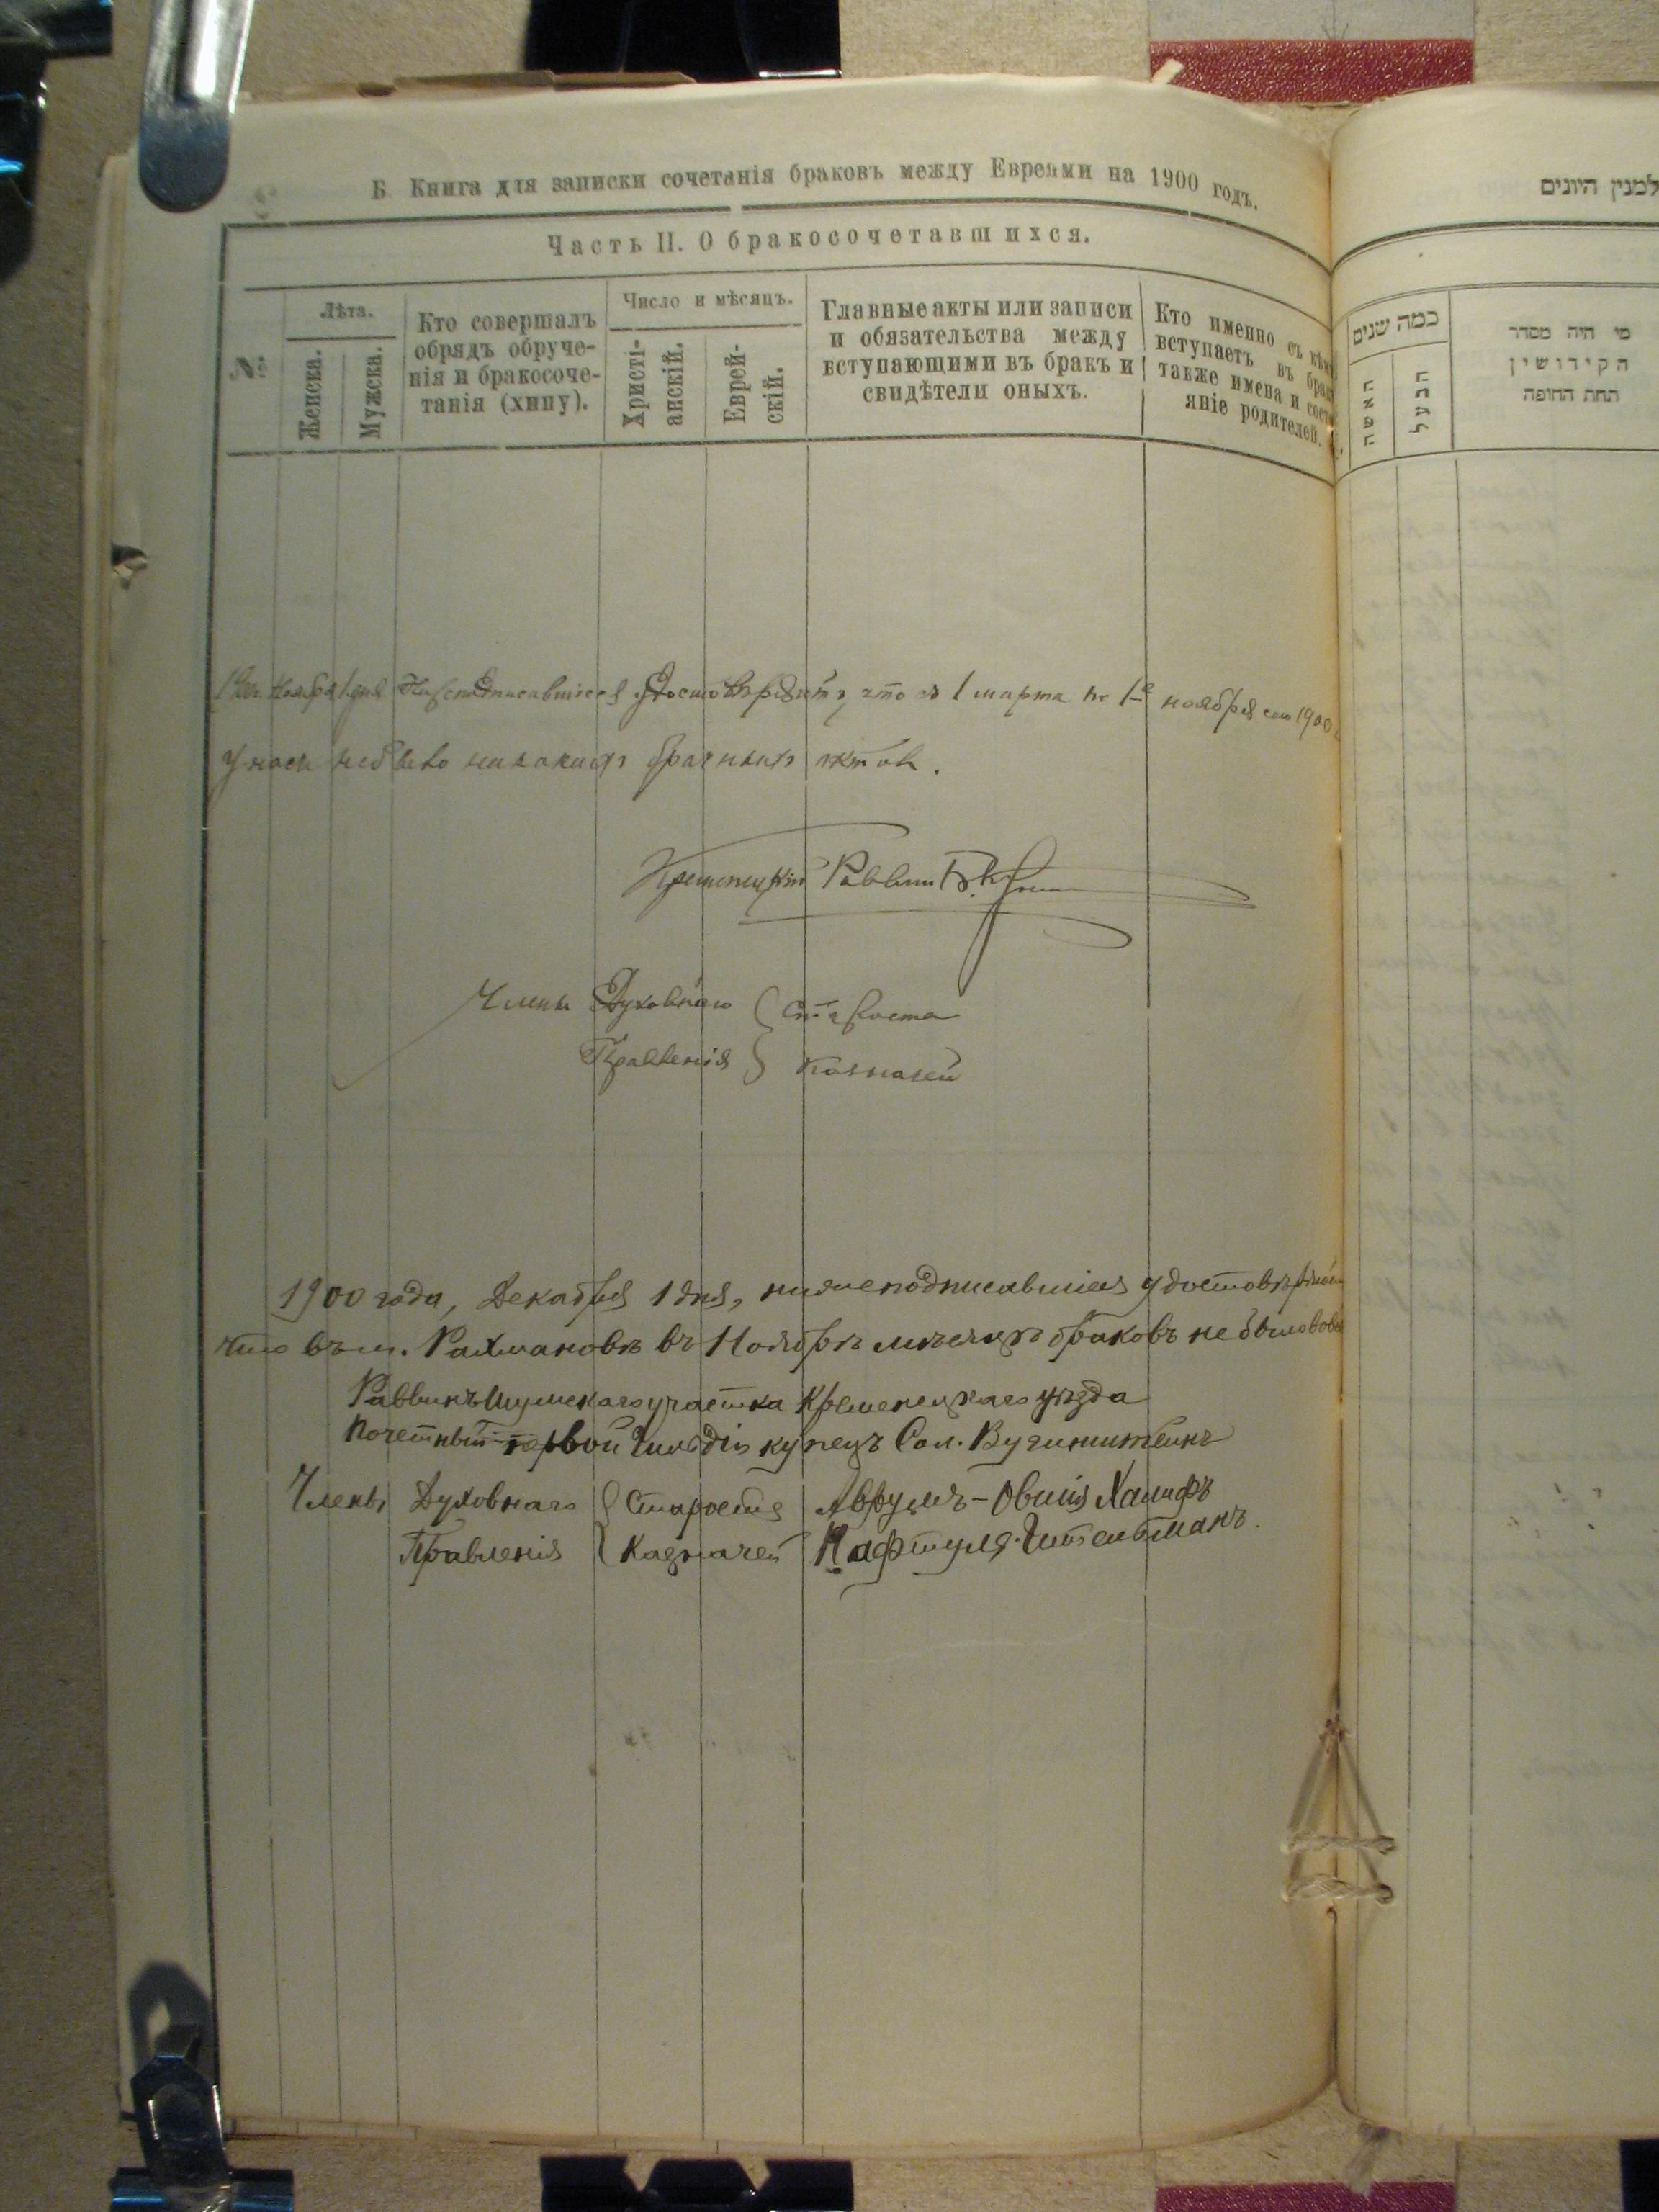 Б. Книга для записки сочетанія браковъ между Евреями на 1900 годъ.
Часть II. О бракосочетавшихся.
№
Лѣта.
Женска.
Мужска.
Кто совершалъ
обрядъ обруче-
нія и бракосоче-
танія (хипу).
Число и мѣсяцъ.
Христі-
анскій.
Еврей-
скій.
Главные акты или записи
и обязательства между
вступающими въ бракъ и
свидѣтели оныхъ.
Кто именно съ кѣмъ
вступаетъ въ бракъ
также имена и состо
яніе родителей.
Ноября 1 дня что съ 1 марта по 1е ноября сего 1900
У насъ небыло никакихъ брачныхъ актов.
Кременецкій Раввин
Члены Духовнаго Староста
Правленія Казначей
1900 года, Декабря 1 дня, нижеподписавшіеся удостовѣряютъ
что въ м. Рахмановѣ въ Ноябрѣ мѣсяцѣ браковъ не было вовсе
Раввинъ Шумскаго участка Кременецкаго уѣзда
Почетный первой Гильдіи купецъ Сол.
Члены Духовнаго Староста Аврумъ-Овшія
Правленія Казначей Нафтуля
למנין היונים
כמה שנים
האשה
הבעל
מי היה מסדר
הקידושין
תחת החופה